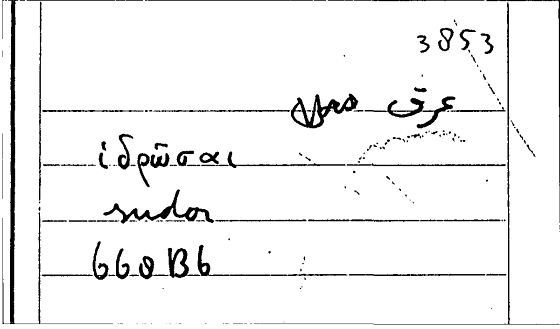 3853
عرق
ἱδρῶσαι
sudor
668 B6